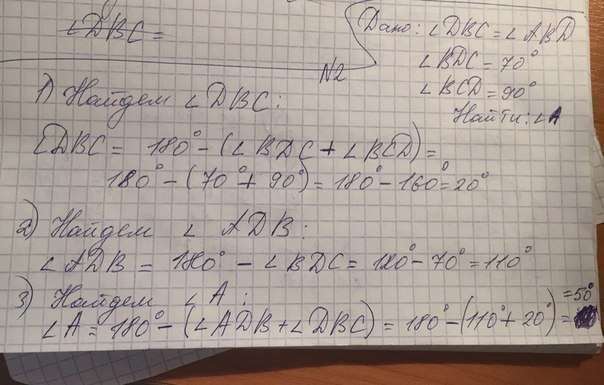 ∠DBC =
N2
Дано: ∠DBC = ∠ABD
∠BDC = 70°
∠BCD = 90°
Найти: ∠A
1) Найдем ∠DBC:
∠DBC = 180° - (∠BDC + ∠BCD) =
180° - (70° + 90°) = 180° - 160° = 20°
2) Найдем ∠ADB:
∠ADB = 180° - ∠BDC = 180° - 70° = 110°
3) Найдем ∠A:
∠A = 180° - (∠ADB + ∠DBC) = 180° - (110° + 20°) = 50°